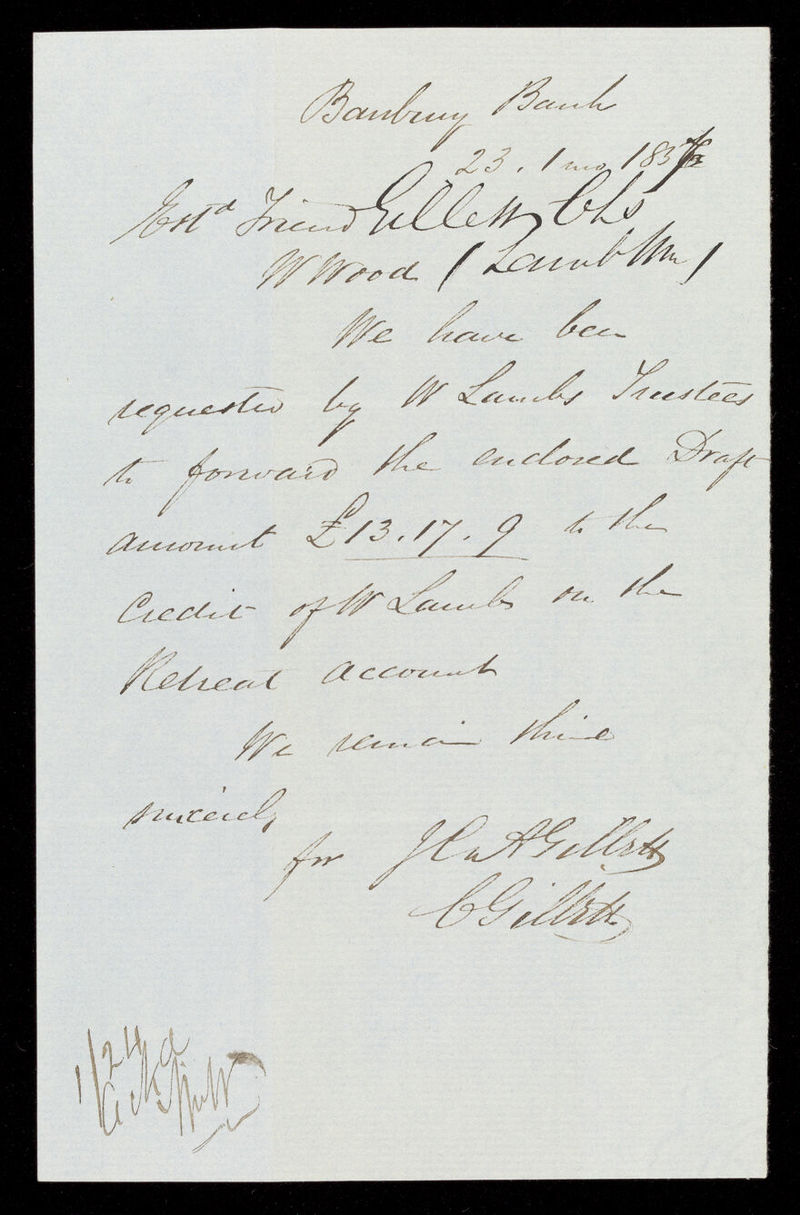 Banbury Bank
23. 1 mo 185
Estd Friend Gillett, Chs
W Wood (Lamb Wm)
We have been
requested by W Lambs Trustees
to forward the enclosed Draft
amount £13.17.9 to the
Credit of W Lambs on the
Retreat account
We remain thine
sincerely
for J C & A Gillett
C Gillett
1/24
Ackd